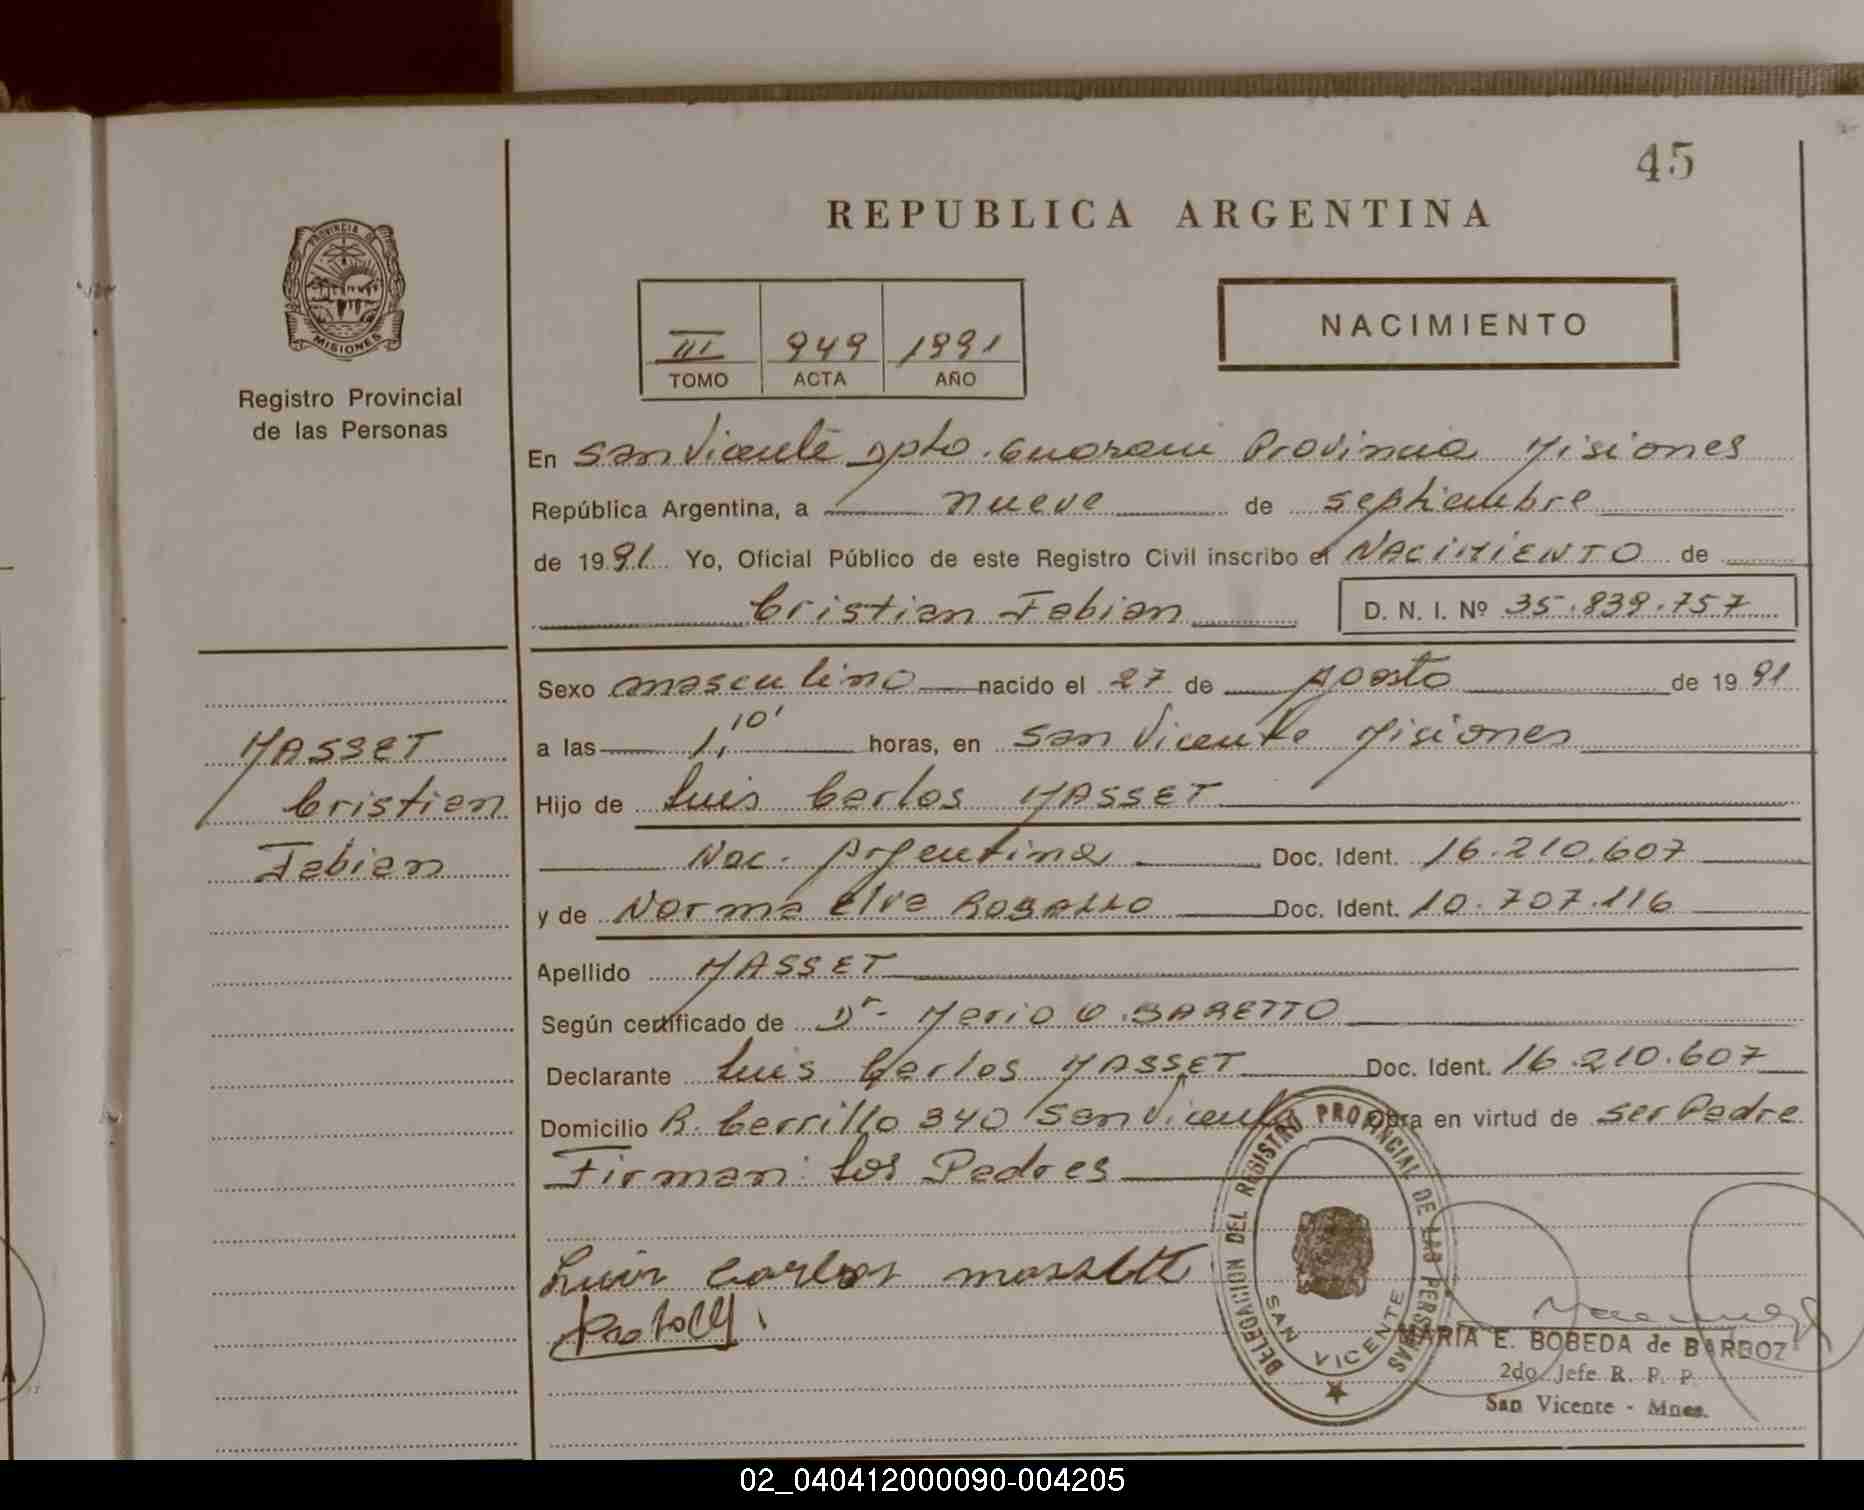 45
REPUBLICA ARGENTINA
PROVINCIA DE
MISIONES
III 949 1991
TOMO ACTA AÑO
NACIMIENTO
Registro Provincial
de las Personas
En San Vicente Dpto. Guarani Provincia Misiones
República Argentina, a nueve de septiembre
de 1991 Yo, Oficial Público de este Registro Civil inscribo el NACIMIENTO de
Cristian Fabian D. N. I. Nº 35.839.757
Sexo masculino nacido el 27 de Agosto de 1991
a las 1,10' horas, en San Vicente Misiones
MASSET
Cristian
Fabian
Hijo de Luis Carlos MASSET
Nac. Argentina Doc. Ident. 16.210.607
y de Norma Elva Doc. Ident. 10.707.116
Apellido MASSET
Según certificado de Dr- Mario O. BARETTO
Declarante Luis Carlos MASSET Doc. Ident. 16.210.607
Domicilio R. Carrillo 340 San Vicente Obra en virtud de ser Padre
Firman: los Padres
Luis Carlos
DELEGACION DEL REGISTRO PROVINCIAL DE LAS PERSONAS
SAN VICENTE
MARIA E. BOBEDA de BARBOZ
2do. Jefe R. P. P.
San Vicente - Mnes.
02_040412000090-004205